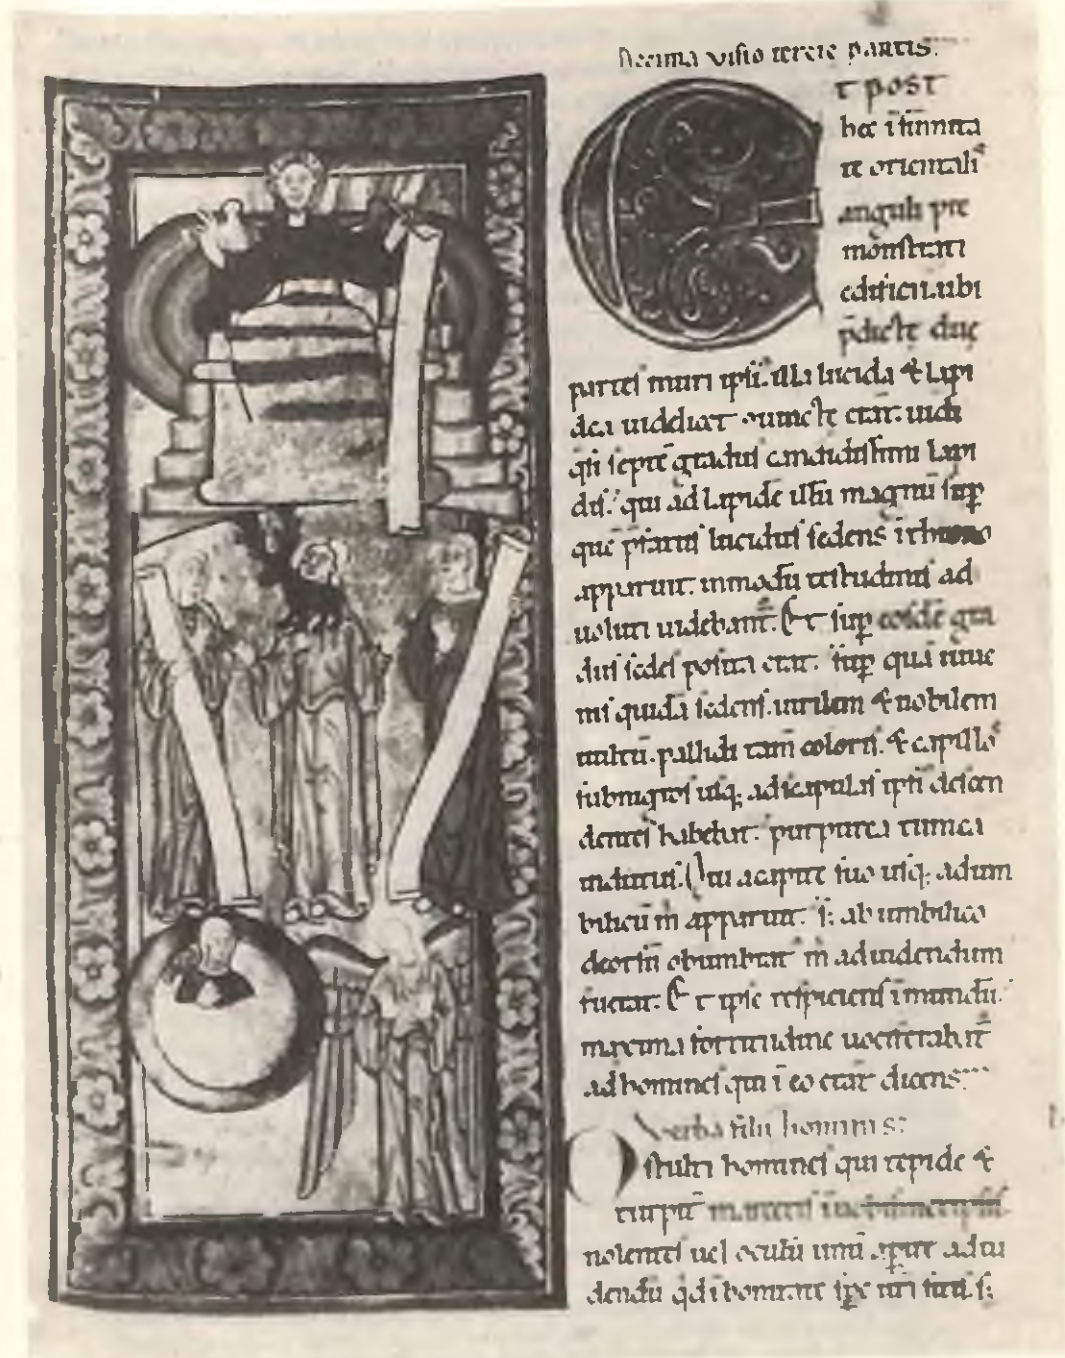 Decima visio tercie partis:
Et post
hec ĩ sũmita
te oriental᷒
anguli pre
monstrati
edificii. ubi
p̃dicte due
partes muri ipsi᷒. illa lucida & lapi
dea uidelicet ciuncte erant: uidi
q̃si septẽ gradus candidissimi lapi
dis: qui ad lapidẽ illũ magnũ sup̱
quẽ p̃fatus lucidus sedens ĩ throno
apparuit. in modũ testudinis ad
uoluti uidebant̃. Et sup̱ eosdẽ gra
dus sedes posita erat: sup̱ quã iuue
nis quidã sedens. uirilem & nobilem
uultũ. pallidi tam̃ coloris. & capillos
subnigros usq; ad scapulas ipsi᷒ descen
dentes habebat: purpurea tunica
indutus. Qui a capite suo usq; ad um
bilicũ m̃ apparuit. s; ab umbilico
deorsũ obumbrat᷒ m̃ ad uidendum
fuerat. Et ipse respiciens ĩ mundũ.
maxima fortitudine uociferabat̃
ad homines qui ĩ eo erant dicens:
Verba filii hominis:
O stulti homines qui tepide &
turpit̃ marcetis ĩ uobismetipsis
nolentes uel oculũ unũ aperire ad ui
dendũ qd ĩ bonitate